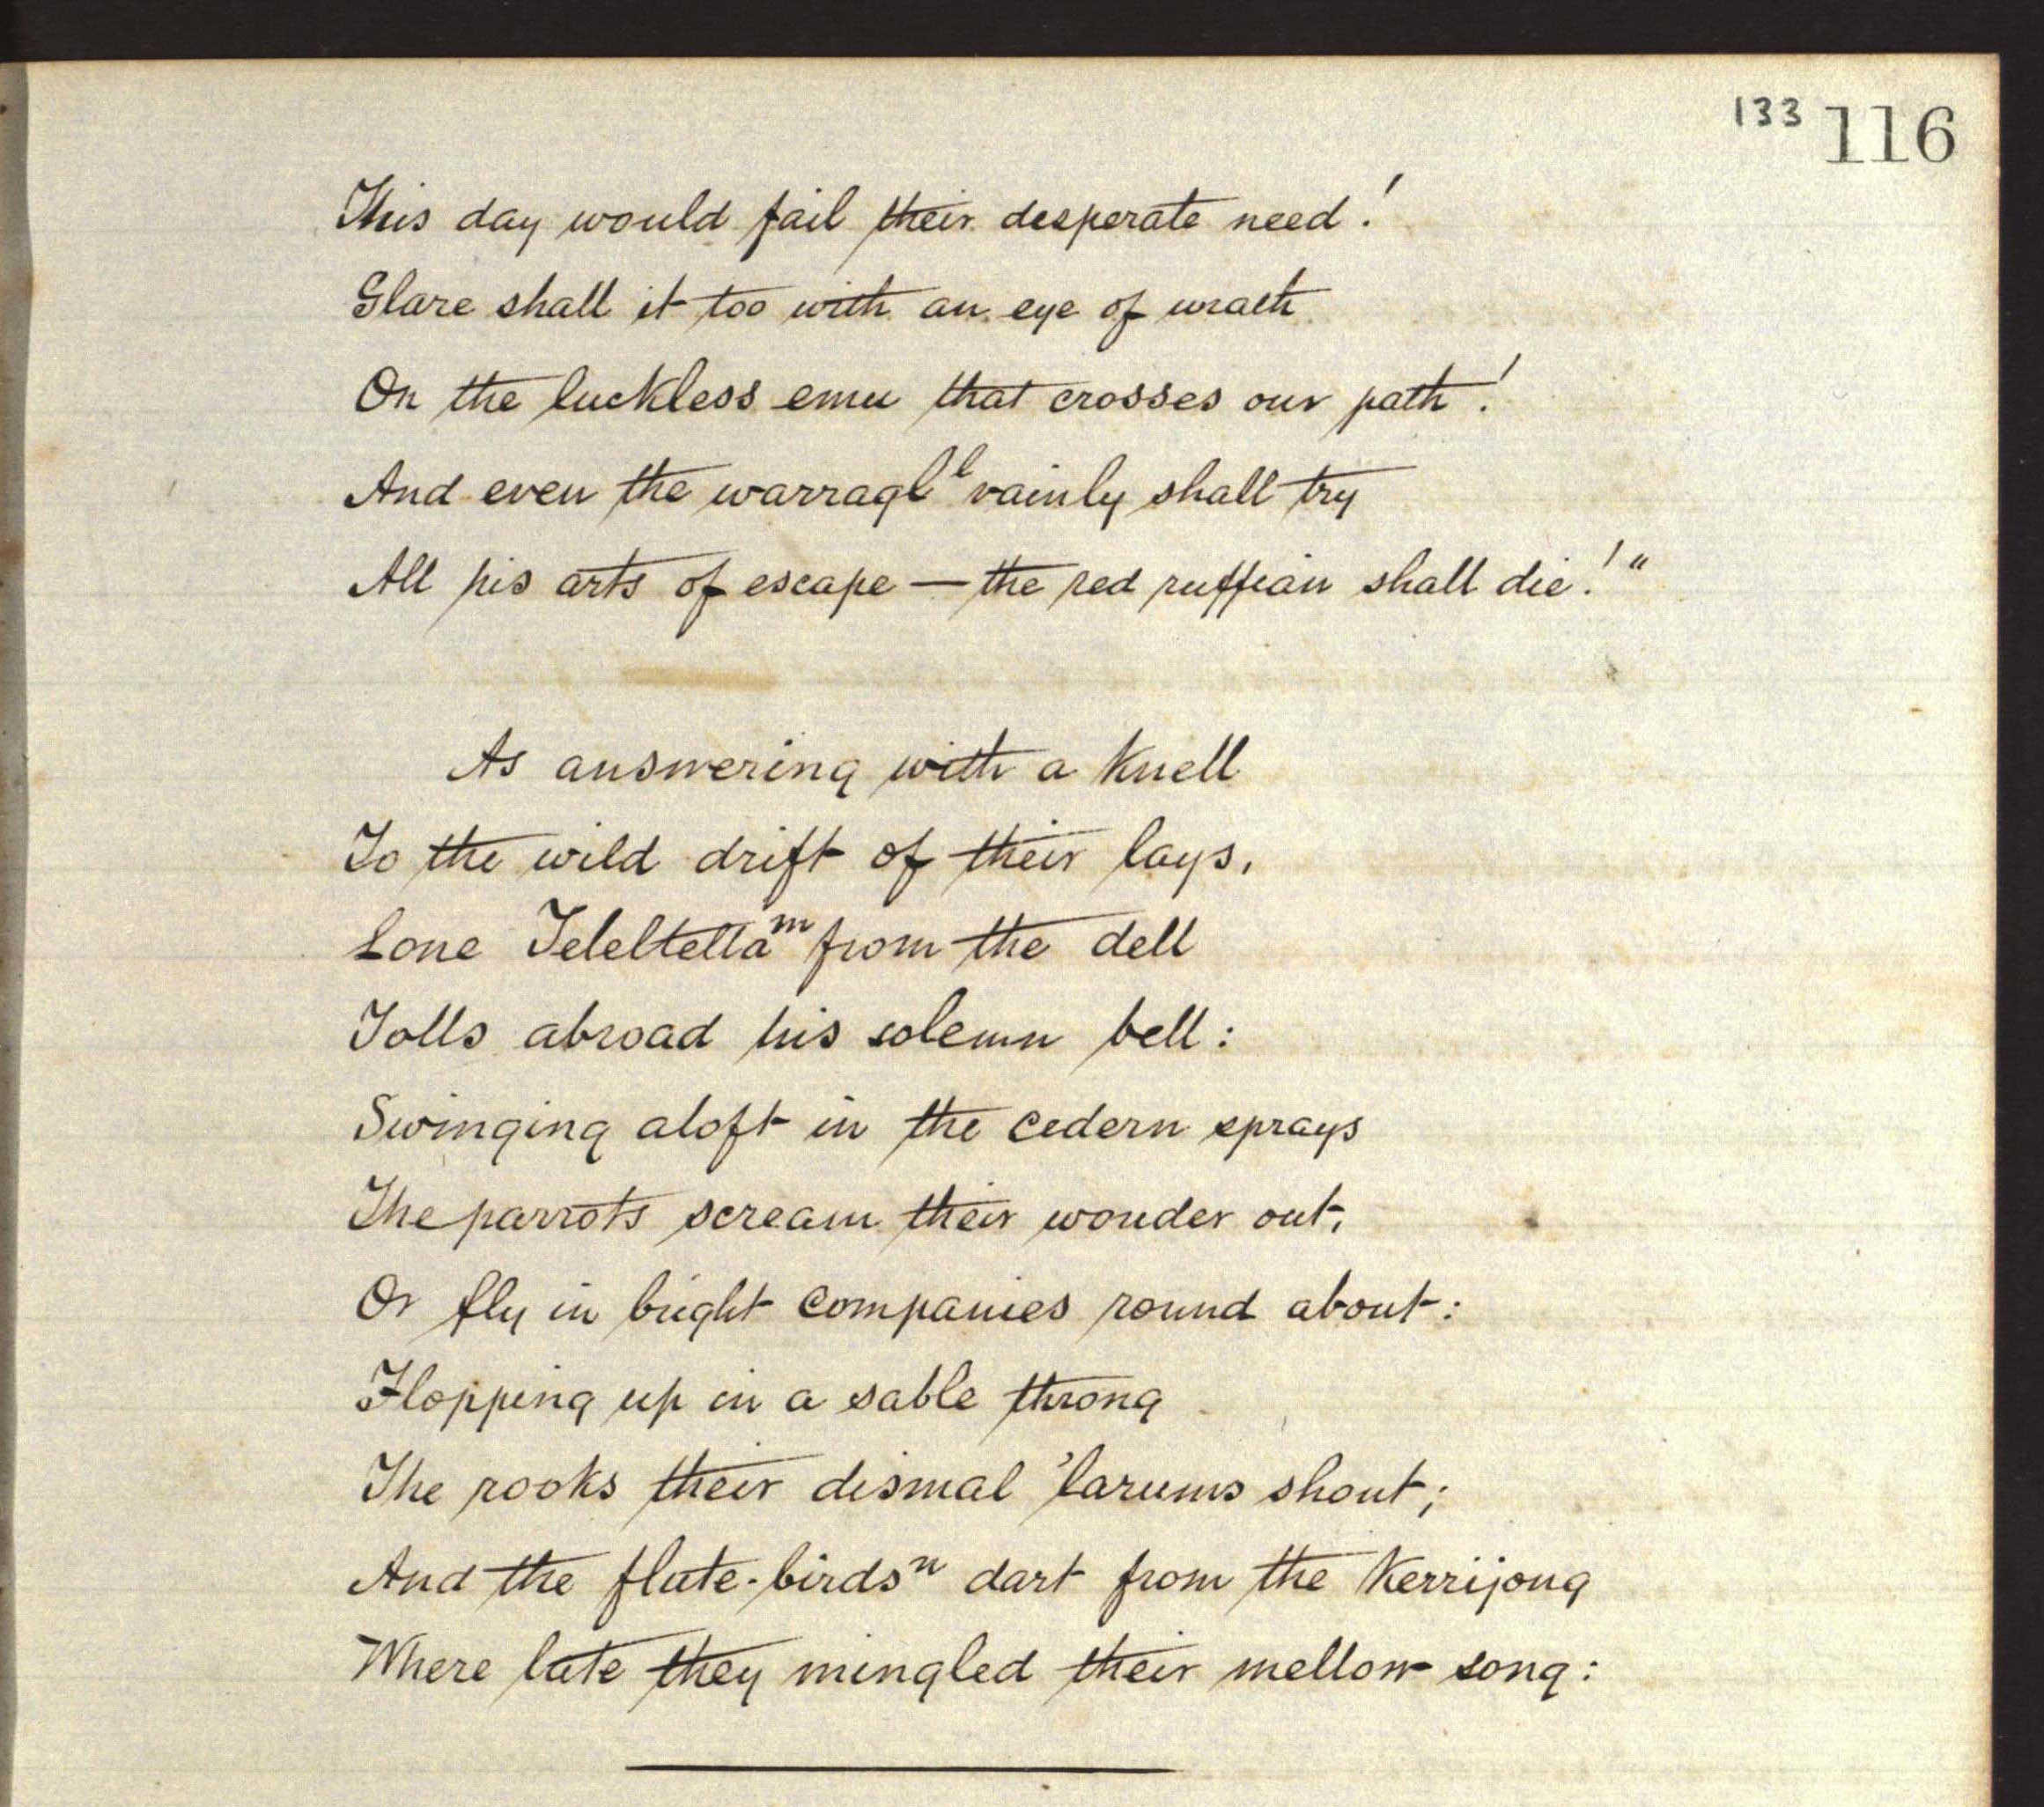 133 116
This day would fail their desperate need!
Glare shall it too with an eye of wrath
On the luckless emu that crosses our path!
And even the warragl l vainly shall try
All his arts of escape — the red ruffian shall die!"
As answering with a knell
To the wild drift of their lays,
Lone Teleltella m from the dell
Tolls abroad his solemn bell:
Swinging aloft in the cedern sprays
The parrots scream their wonder out,
Or fly in bright companies round about:
Flopping up in a sable throng
The rooks their dismal 'larums shout;
And the flute-birds n dart from the Kerrijong
Where late they mingled their mellow song: